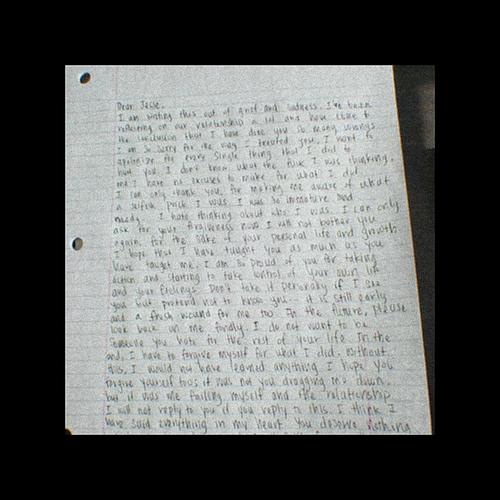 Dear Jesse,
I am writing this out of grief and sadness. I've been
reflecting on our relationship a lot and have come to
the conclusion that I have done you so many wrongs.
I am so sorry for the way I treated you. I want to
apologize for every single thing that I did to
hurt you. I don't know what the fuck I was thinking.
I have no excuses to make for what I did.
I can only thank you for making me aware of what
a selfish prick I was. I was so immature and
needy. I hate thinking about who I was. I can only
ask for your forgiveness now. I will not bother you
again, for the sake of your personal life and growth.
I hope that I have taught you as much as you
have taught me. I am so proud of you for taking
action and starting to take control of your own life
and your feelings. Don't take it personally if I see
you but pretend not to know you. it is still early
and a fresh wound for me too. In the future, please
look back on me fondly. I do not want to be
someone you hate for the rest of your life. In the
end, I have to forgive myself for what I did. Without
this, I would not have learned anything. I hope you
forgive yourself too; it was not you dragging me down,
but it was me failing myself and the relationship.
I will not reply to you if you reply to this. I think I
have said everything in my heart. You deserve nothing